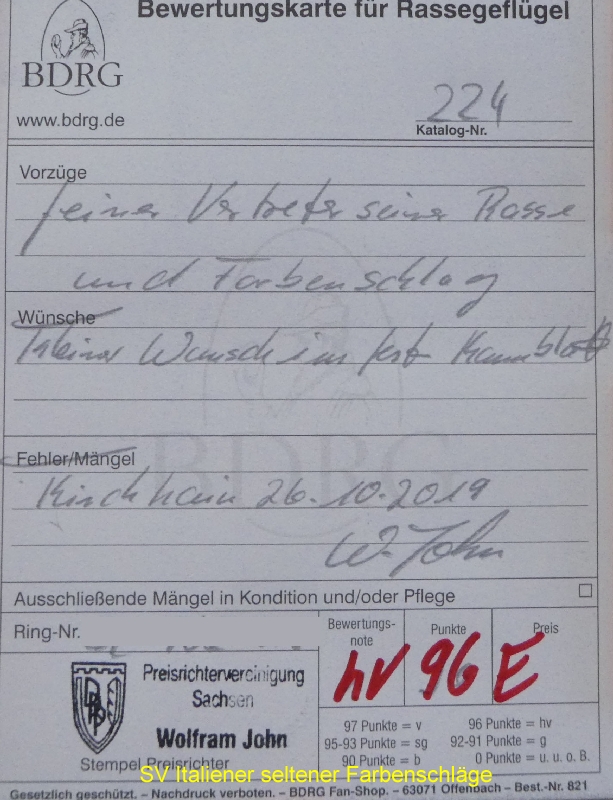 Bewertungskarte für Rassegeflügel
BDRG
www.bdrg.de
224
Katalog-Nr.
Vorzüge
feiner Vertreter seiner Rasse
und Farbenschlag
Wünsche
kleiner Wunsch im Kammblatt
Fehler/Mängel
Kirchhain 26.10.2019
W. John
BDRG
Ausschließende Mängel in Kondition und/oder Pflege
Ring-Nr.
Bewertungs-
note
Punkte
Preis
hv 96 E
Preisrichtervereinigung
Sachsen
Wolfram John
Stempel Preisrichter
97 Punkte = v
96 Punkte = hv
95-93 Punkte = sg
92-91 Punkte = g
90 Punkte = b
0 Punkte = u. u. o. B.
SV Italiener seltener Farbenschläge
Gesetzlich geschützt. – Nachdruck verboten. – BDRG Fan-Shop. – 63071 Offenbach – Best.-Nr. 821